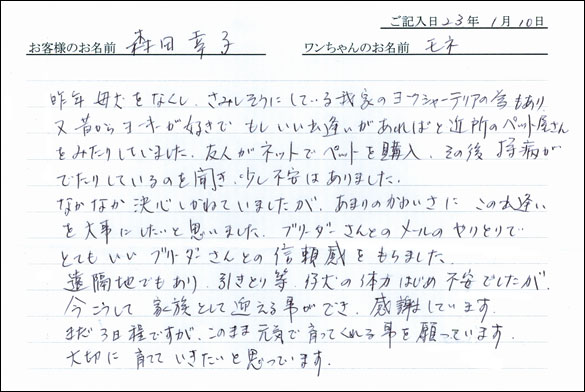 ご記入日 23年 1月 10日
お客様のお名前 森田 幸子 ワンちゃんのお名前 モネ
昨年母犬をなくし、さみしそうにしている我家のヨークシャーテリアの為もあり
又昔からヨーキーが好きでもしいい出逢いがあればと近所のペット屋さん
をみたりしていました。友人がネットでペットを購入、その後持病が
でたりしているのを聞き、少し不安はありました。
なかなか決心しかねていましたが、あまりのかわいさに この出逢い
を大事にしたいと思いました。ブリーダーさんとのメールのやりとりで
とてもいいブリーダーさんとの信頼感をもちました。
遠隔地でもあり、引きとり等、仔犬の体力はじめ不安でしたが、
今こうして家族として迎える事ができ、感謝しています。
まだ3日程ですが、このまま元気で育ってくれる事を願っています。
大切に育てていきたいと思っています。